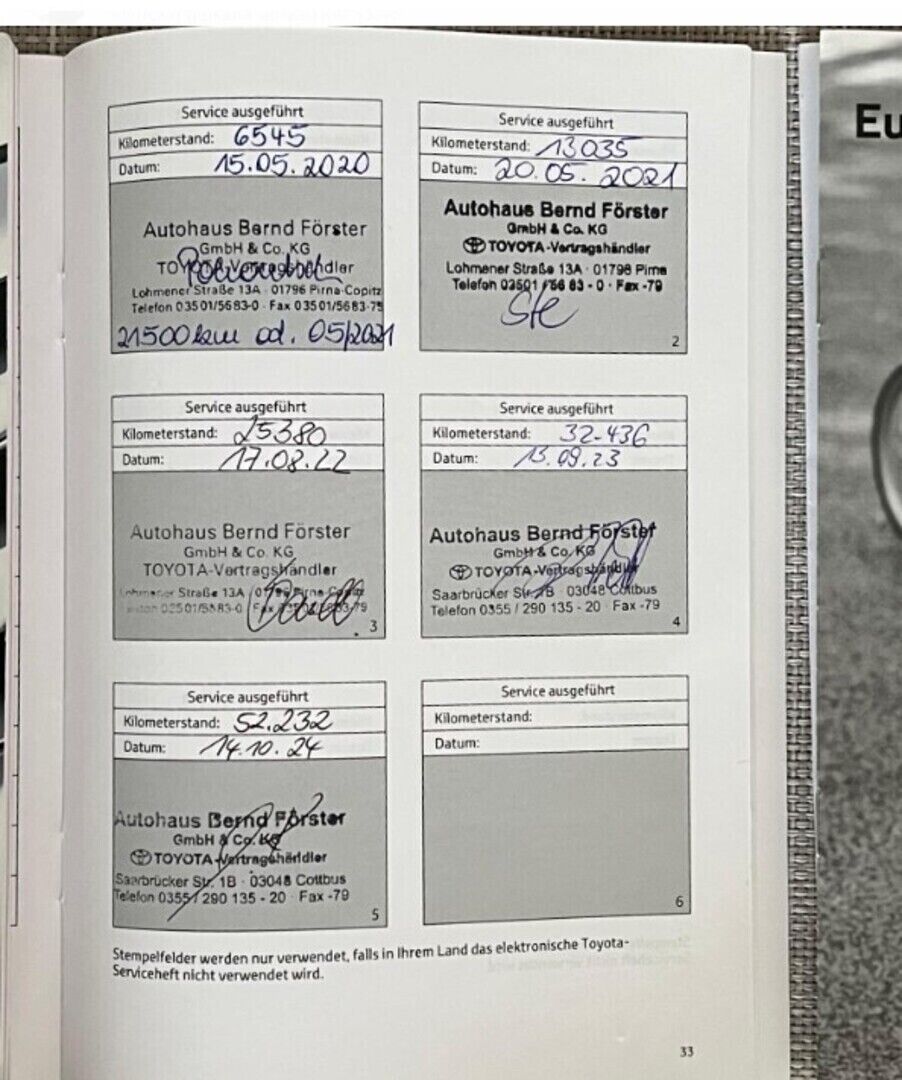 Service ausgeführt
Kilometerstand: 6545
Datum: 15.05.2020
Autohaus Bernd Förster
GmbH & Co. KG
TOYOTA-Vertragshändler
Lohmener Straße 13A · 01796 Pirna-Copitz
Telefon 03501/5683-0 · Fax 03501/5683-79
21500 km od. 05/2021
Service ausgeführt
Kilometerstand: 13035
Datum: 20.05.2021
Autohaus Bernd Förster
GmbH & Co. KG
TOYOTA-Vertragshändler
Lohmener Straße 13A · 01796 Pirna
Telefon 03501 / 56 83 - 0 · Fax -79
2
Service ausgeführt
Kilometerstand: 25380
Datum: 17.08.22
Autohaus Bernd Förster
GmbH & Co. KG
TOYOTA-Vertragshändler
Lohmener Straße 13A / 01796 Pirna-Copitz
Telefon 03501/5683-0 Fax 03501/5683-79
3
Service ausgeführt
Kilometerstand: 32-436
Datum: 13.09.23
Autohaus Bernd Förster
GmbH & Co. KG
TOYOTA-Vertragshändler
Saarbrücker Str. 1B · 03048 Cottbus
Telefon 0355 / 290 135 - 20 · Fax -79
4
Service ausgeführt
Kilometerstand: 52.232
Datum: 14.10.24
Autohaus Bernd Förster
GmbH & Co. KG
TOYOTA-Vertragshändler
Saarbrücker Str. 1B · 03048 Cottbus
Telefon 0355 / 290 135 - 20 · Fax -79
5
Service ausgeführt
Kilometerstand:
Datum:
6
Stempelfelder werden nur verwendet, falls in Ihrem Land das elektronische Toyota-
Serviceheft nicht verwendet wird.
33
Eu